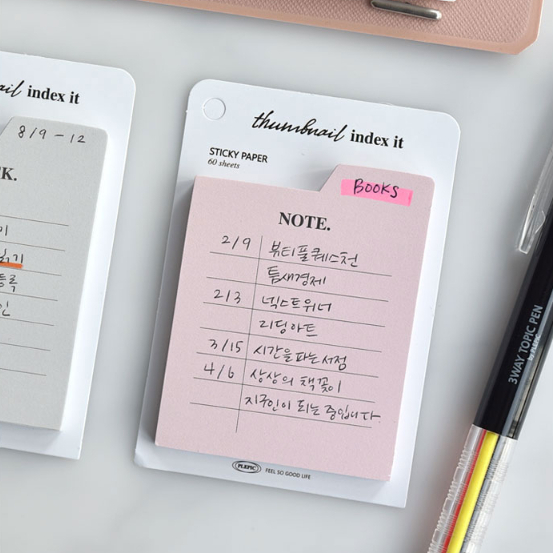 thumbnail index it
STICKY PAPER
60 sheets
BOOKS
NOTE.
2/9 뷰티풀퀘스천
틈새경제
2/3 넥스트위너
리딩아트
3/15 시간을파는서점
4/6 상상의 책꽂이
지구인이 되는 중입니다.
PLEPIC FEEL SO GOOD LIFE
index it
8/9 - 12
K.
3WAY TOPIC PEN